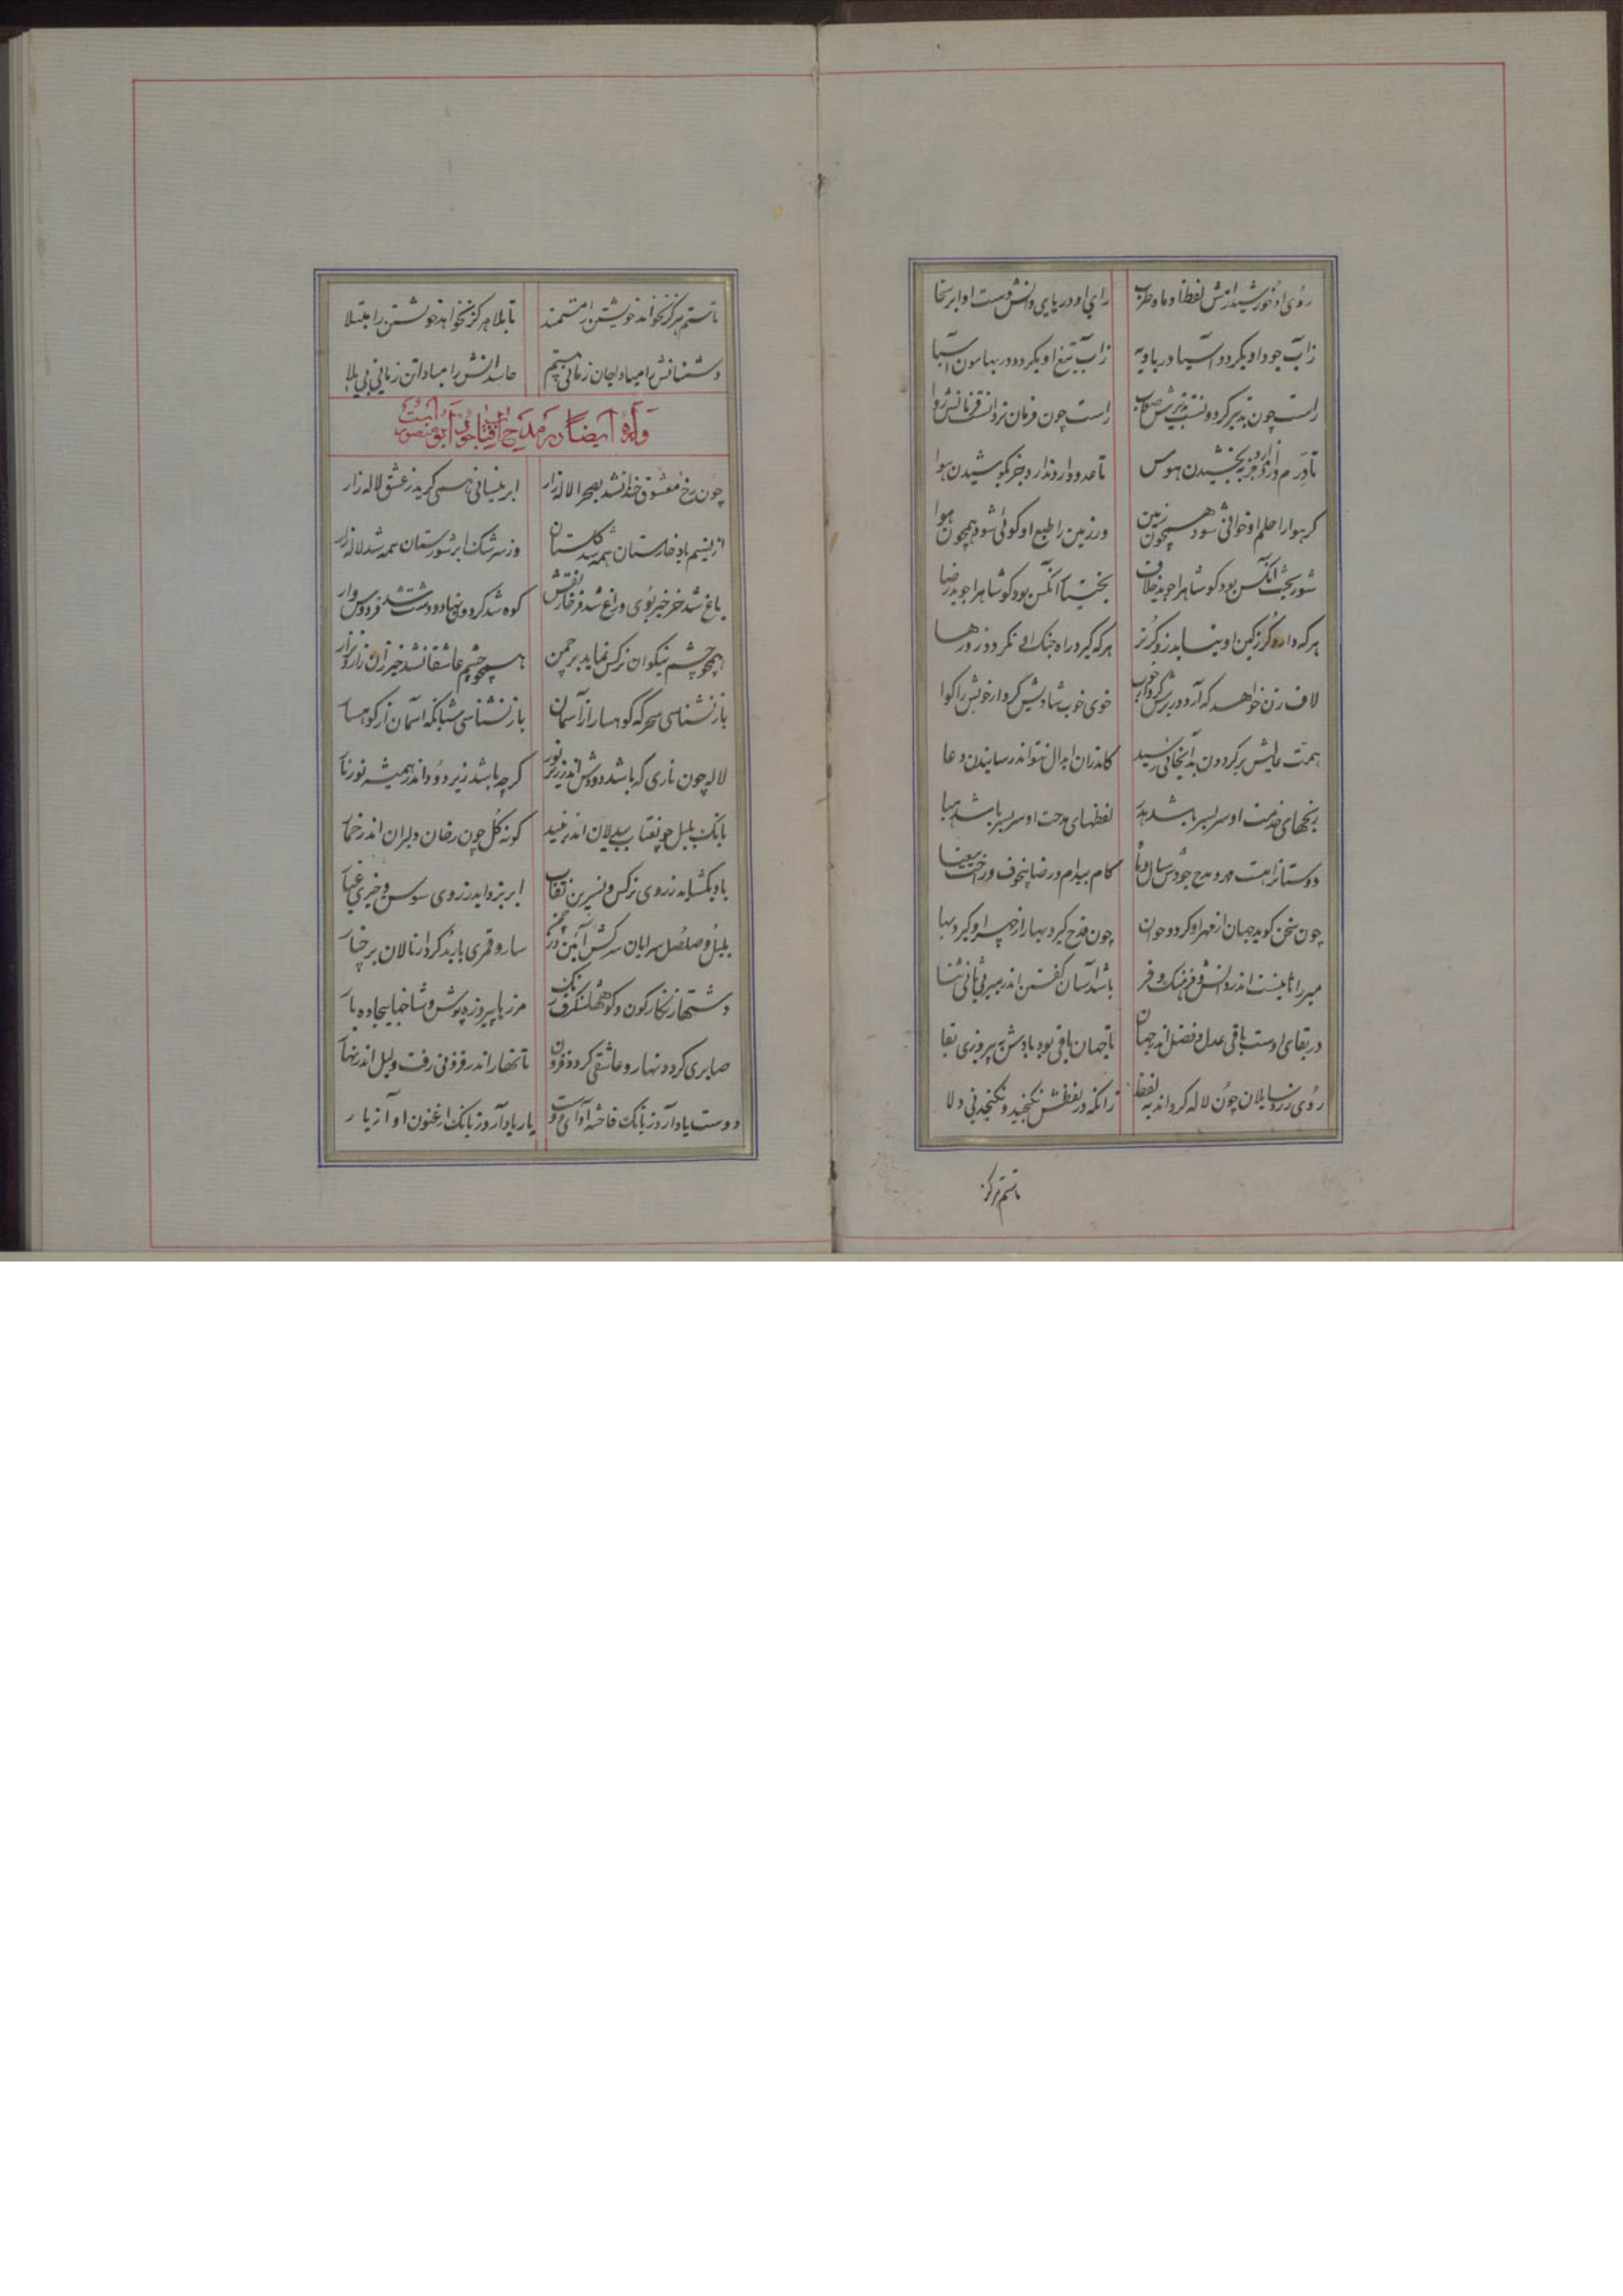 روی او خورشید ارش لفظ او ماه طرب رای او دریای دانش دست او ابر سخا
ز آب جود او بگردد آسیا در بادیه ز آب تیغ او بگردد در بهامون آسیا
راست چون تدبیر گردون نیست تدبیرش صواب راست چون فرمان یزدانست فرمانش روا
تا درم دارد ندارد جز ببخشیدن هوس تا عدو دارد ندارد جز بکوشیدن هوا
کر هوا را حلم او خوانی شود همچون زمین ور زمین را طبع او کوئی شود همچون هوا
شوربخت آنکس بود کو شاه را جوید خلاف بختیار آنکس بود کو شاه را جوید رضا
هرکه دارد کرز کین او نیابد زو کریز هرکه کیرد راه جنک او نکردد زو رها
لاف زن خواهد که آرد در برش کردار خوب خوی خوب شادیش کردار خویش را کوا
همت عالیش بر کردون بدانجائی رسید کاندران ابدال نتواند رسانیدن دعا
رنجهای خدمت او سربسر باشد هدر لفظهای مدحت او سربسر باشد هبا
دوستانرا هست مهر و مدح جودش سال و ماه کام بیدام و رضا بیخوف و راحت بیعنا
چون سخن کوید جهان از فهر او کردد جوان چون قدح کیرد بهار از چهر او کیرد بها
میر را ثانیست اندر دانش و فرهنک و فر باشد آسان کفتن اندر میر بی ثانی ثنا
در بقای اوست باقی عدل و فضل اندر جهان تا جهان باقی بود بادش به پیروزی بقا
روی زرد سایلان چون لاله کرداند به لفظ زانکه در لفظش نکنجید و نکنجد نی و لا
تا ستم هرکز
تا ستم هرکز نخواهد خویشتن را مستمند تا بلا هرکز نخواهد خویشتن را مبتلا
دشمنانش را مبادا جان زمانی بی ستم حاسدانش را مبادا تن زمانی بی بلا
وله ایضا در مدح ابومنصور
چون رخ معشوق خندان شد بصحرا لاله زار ابر نیسانی همی کرید ز عشق لاله زار
از نسیم باد خارستان همه شد کلستان وز سرشک ابر شورستان همه شد لاله زار
باغ شد خرخیز بوی و راغ شد فرخار نقش کوه شد کردون نهاد و دشت شد فردوس وار
همچو چشم نیکوان نرکس نماید بر چمن همچو چشم عاشقان شد خیزران زار و نزار
باز نشناسی سحرکه کوهسار از آسمان باز نشناسی شبانکه آسمان از کوهسار
لاله چون ناری که باشد دودش اندر زیر نور کرچه باشد زیر دود اندر همیشه نور نار
بانک بلبل چون عتاب بیدلان اندر نبید کونه کل چون رخان دلبران اندر خمار
باد بکشاید ز روی نرکس و نسرین نقاب ابر بزداید ز روی سوسن و خیری غبار
بلبل و صلصل سرایان سرکش آئین در چمن سار و قمری باربد کردار نالان بر چنار
دشتها زنکارکون و کوهها شنکرف رنک مرزها پیروزه پوش و شاخها بیجاده بار
صابری کردد نهار و عاشقی کردد فزون تا نهار اندر فزونی رفت و لیل اندر نهار
دوست یاد آرد ز بانک فاخته آوای دوست یار یاد آرد ز بانک ارغنون آواز یار